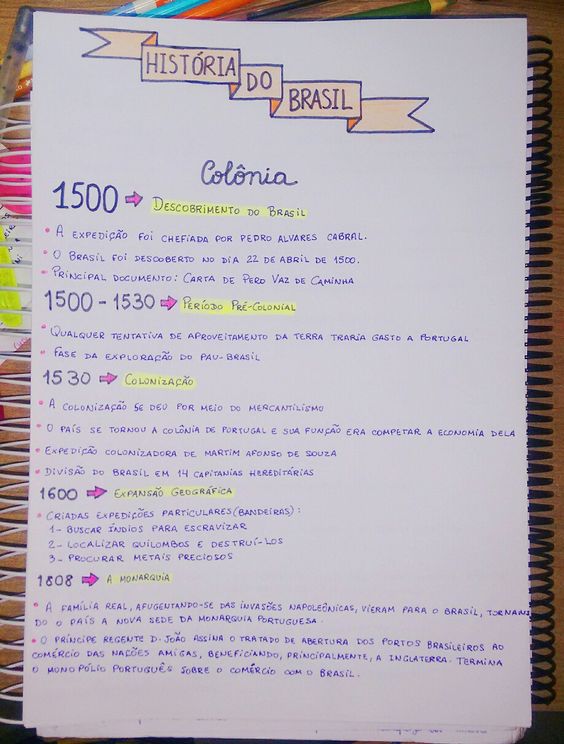 HISTÓRIA DO BRASIL
Colônia
1500 → DESCOBRIMENTO DO BRASIL
• A EXPEDIÇÃO FOI CHEFIADA POR PEDRO ALVARES CABRAL.
• O BRASIL FOI DESCOBERTO NO DIA 22 DE ABRIL DE 1500.
• PRINCIPAL DOCUMENTO: CARTA DE PERO VAZ DE CAMINHA
1500 - 1530 → PERÍODO PRÉ-COLONIAL
• QUALQUER TENTATIVA DE APROVEITAMENTO DA TERRA TRARIA GASTO A PORTUGAL
• FASE DA EXPLORAÇÃO DO PAU-BRASIL
1530 → COLONIZAÇÃO
• A COLONIZAÇÃO SE DEU POR MEIO DO MERCANTILISMO
• O PAÍS SE TORNOU A COLÔNIA DE PORTUGAL E SUA FUNÇÃO ERA COMPETAR A ECONOMIA DELA
• EXPEDIÇÃO COLONIZADORA DE MARTIM AFONSO DE SOUZA
• DIVISÃO DO BRASIL EM 14 CAPITANIAS HEREDITÁRIAS
1600 → EXPANSÃO GEOGRÁFICA
• CRIADAS EXPEDIÇÕES PARTICULARES (BANDEIRAS):
1- BUSCAR ÍNDIOS PARA ESCRAVIZAR
2- LOCALIZAR QUILOMBOS E DESTRUÍ-LOS
3- PROCURAR METAIS PRECIOSOS
1808 → A MONARQUIA
• A FAMÍLIA REAL, AFUGENTANDO-SE DAS INVASÕES NAPOLEÔNICAS, VIERAM PARA O BRASIL, TORNAN
DO O PAÍS A NOVA SEDE DA MONARQUIA PORTUGUESA.
• O PRÍNCIPE REGENTE D. JOÃO ASSINA O TRATADO DE ABERTURA DOS PORTOS BRASILEIROS AO
COMÉRCIO DAS NAÇÕES AMIGAS, BENEFICIANDO, PRINCIPALMENTE, A INGLATERRA. TERMINA
O MONOPÓLIO PORTUGUÊS SOBRE O COMÉRCIO COM O BRASIL.